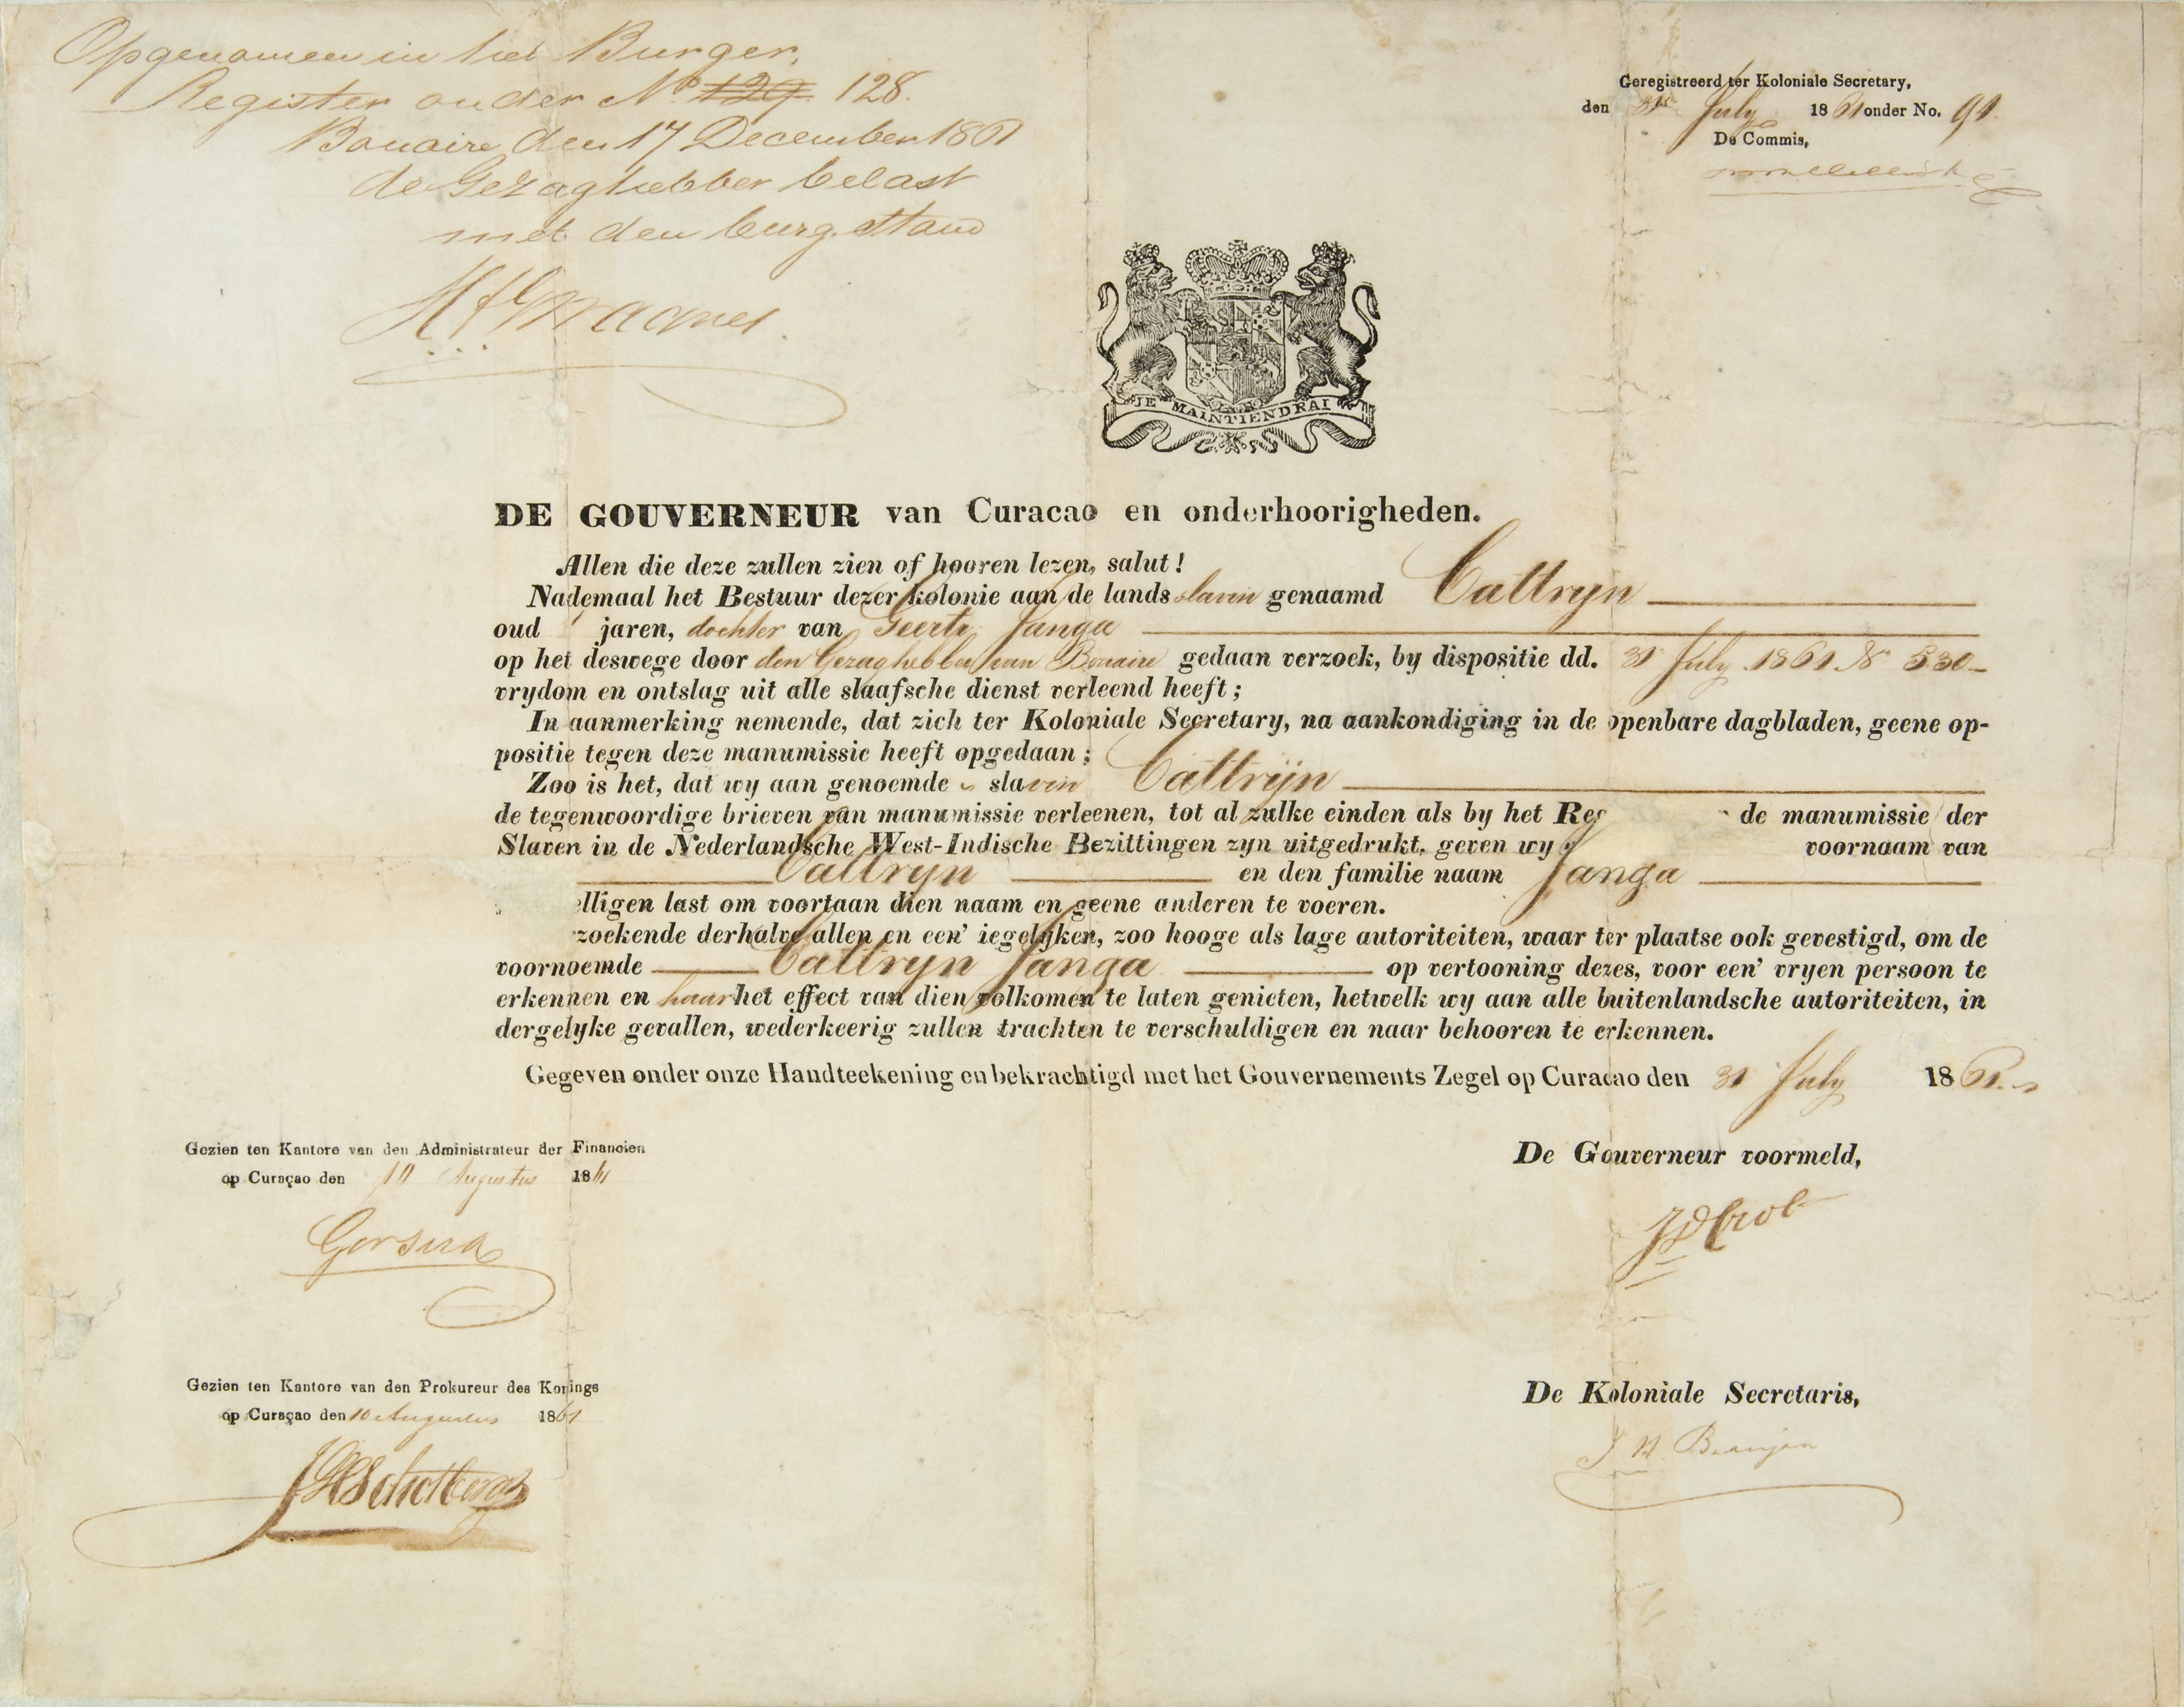 Opgenomen in het Burger,
Register onder No 129 128.
Bonaire den 17 December 1861
de Gezaghebber belast
met den burg. Stand
Geregistreerd ter Koloniale Secretary,
den 31 July 1861 onder No. 91
De Commis,
JE MAINTIENDRAI
DE GOUVERNEUR van Curacao en onderhoorigheden.
Allen die deze zullen zien of hooren lezen, salut!
Nademaal het Bestuur dezer kolonie aan de lands slavin genaamd Cattryn
oud jaren, dochter van Geertr Janga
op het deswege door den Gezaghebber van Bonaire gedaan verzoek, by dispositie dd. 31 July 1861 No 530
vrydom en ontslag uit alle slaafsche dienst verleend heeft;
In aanmerking nemende, dat zich ter Koloniale Secretary, na aankondiging in de openbare dagbladen, geene op-
positie tegen deze manumissie heeft opgedaan;
Zoo is het, dat wy aan genoemde slavin Cattrijn
de tegenwoordige brieven van manumissie verleenen, tot al zulke einden als by het Reg de manumissie der
Slaven in de Nederlandsche West-Indische Bezittingen zyn uitgedrukt, geven wy voornaam van
Cattryn en den familie naam Janga
elligen last om voortaan dien naam en geene anderen te voeren.
zoekende derhalve allen en een' iegelijken, zoo hooge als lage autoriteiten, waar ter plaatse ook gevestigd, om de
voornoemde Cattryn Janga op vertooning dezes, voor een' vryen persoon te
erkennen en haar het effect van dien volkomen te laten genieten, hetwelk wy aan alle buitenlandsche autoriteiten, in
dergelyke gevallen, wederkeerig zullen trachten te verschuldigen en naar behooren te erkennen.
Gegeven onder onze Handteekening en bekrachtigd met het Gouvernements Zegel op Curacao den 31 July 1861.
Gezien ten Kantore van den Administrateur der Financien
op Curaçao den 10 Augustus 1861
Gorsira
De Gouverneur voormeld,
JD Crol
Gezien ten Kantore van den Prokureur des Konings
op Curaçao den 10 Augustus 1861
Schotborgh
De Koloniale Secretaris,
J H Beaujon